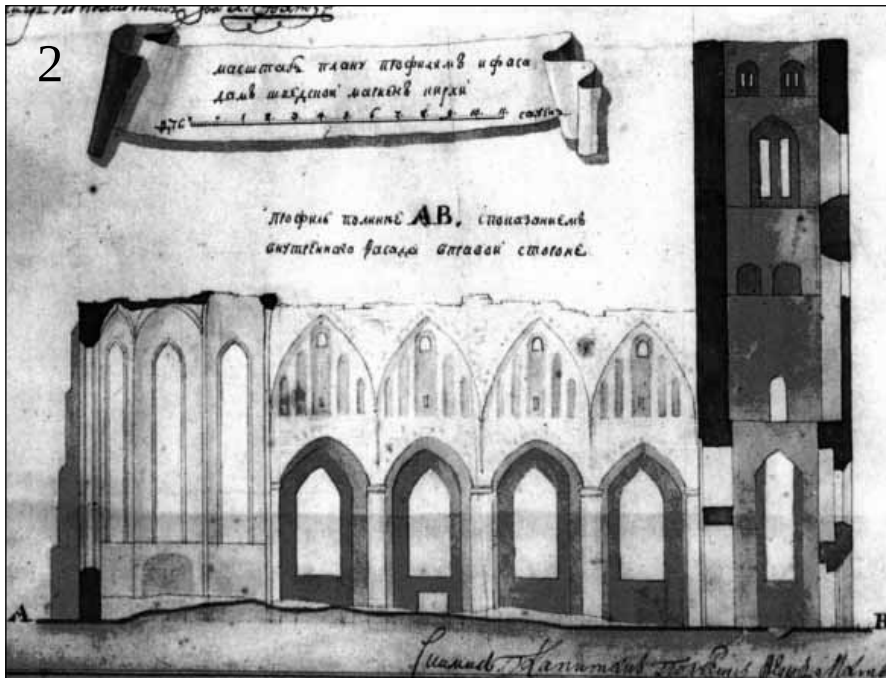 2
масштабъ плану профилямъ и фаса
дамъ шведской мариенъ кирхи
1 2 3 4 5 6 7 8 9 10 11 сажень
профиль полинѣе АВ, споказаниемъ
внутреннаго фасада вправой стороне
А
В
Капитанъ